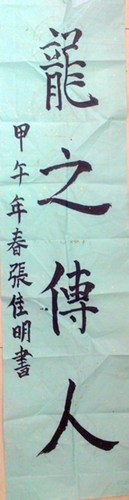 龍之傳人
甲午年春張佳明書